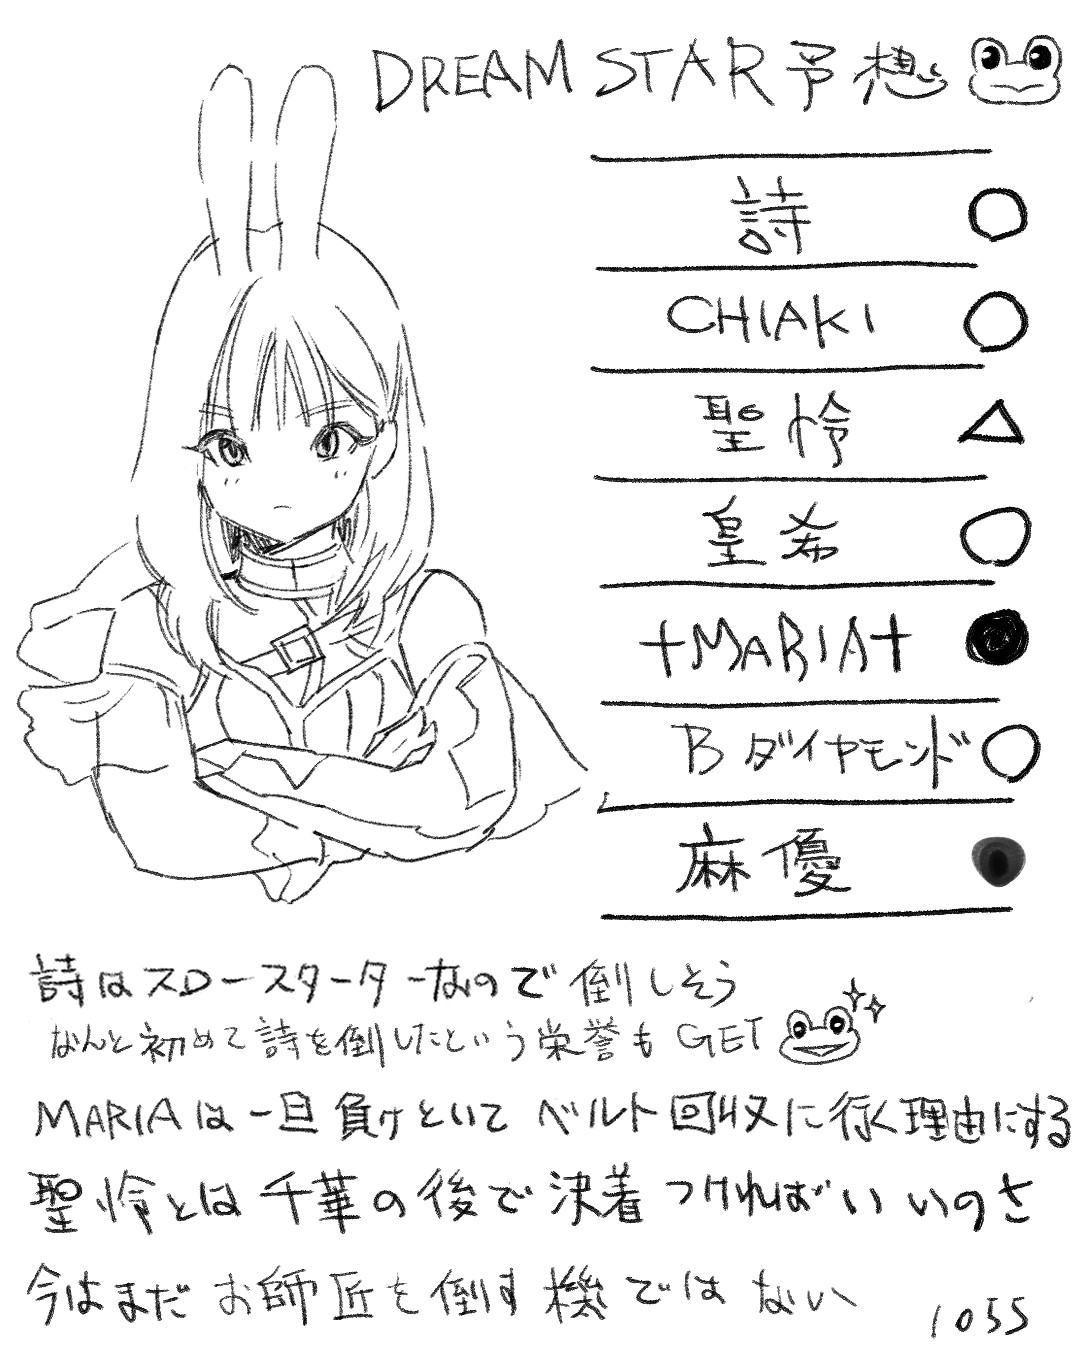 DREAM STAR予想
詩 ○
CHIAKI ○
聖怜 △
皇希 ○
+MARIA+ ●
Bダイヤモンド ○
麻優 ●
詩はスロースターターなので倒しそう
なんと初めて詩を倒したという栄誉もGET
MARIAは一旦負けといてベルト回収に行く理由にする
聖怜とは千華の後で決着つければいいのさ
今はまだお師匠を倒す機ではない
1055